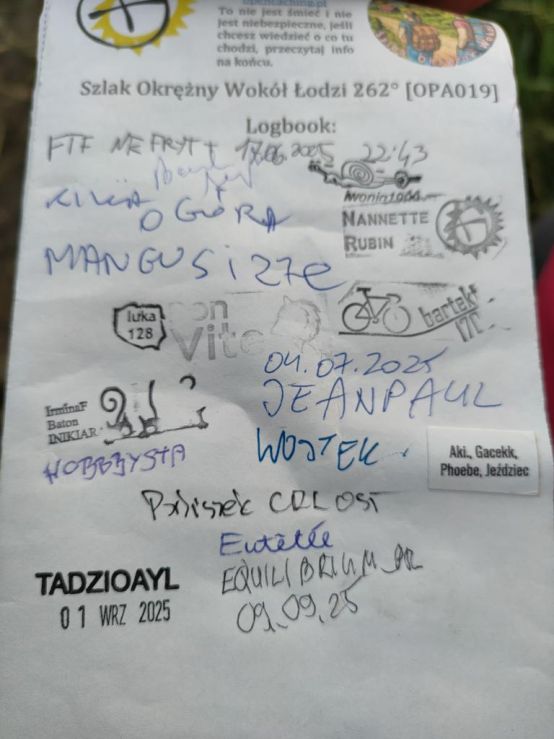 opencaching.pl
To nie jest śmieć i nie
jest niebezpieczne, jeśli
chcesz wiedzieć o co tu
chodzi, przeczytaj info
na końcu.
Szlak Okrężny Wokół Łodzi 262° [OPA019]
Logbook:
FTF NEFRYT+ 17.06.2025 22:43
iwonia1066
O GÓRA
NANNETTE
RUBIN
MANGUSi27e
luka
128
Vite
bartak
04.07.2025
JEANPAUL
IrminaF
Baton
INIKJAR
WOJTEK
HOBBYSTA
Aki., Gacekk,
Phoebe, Jeździec
TADZIOAYL
01 WRZ 2025
EQUILIBRIUM_PL
09.09.25